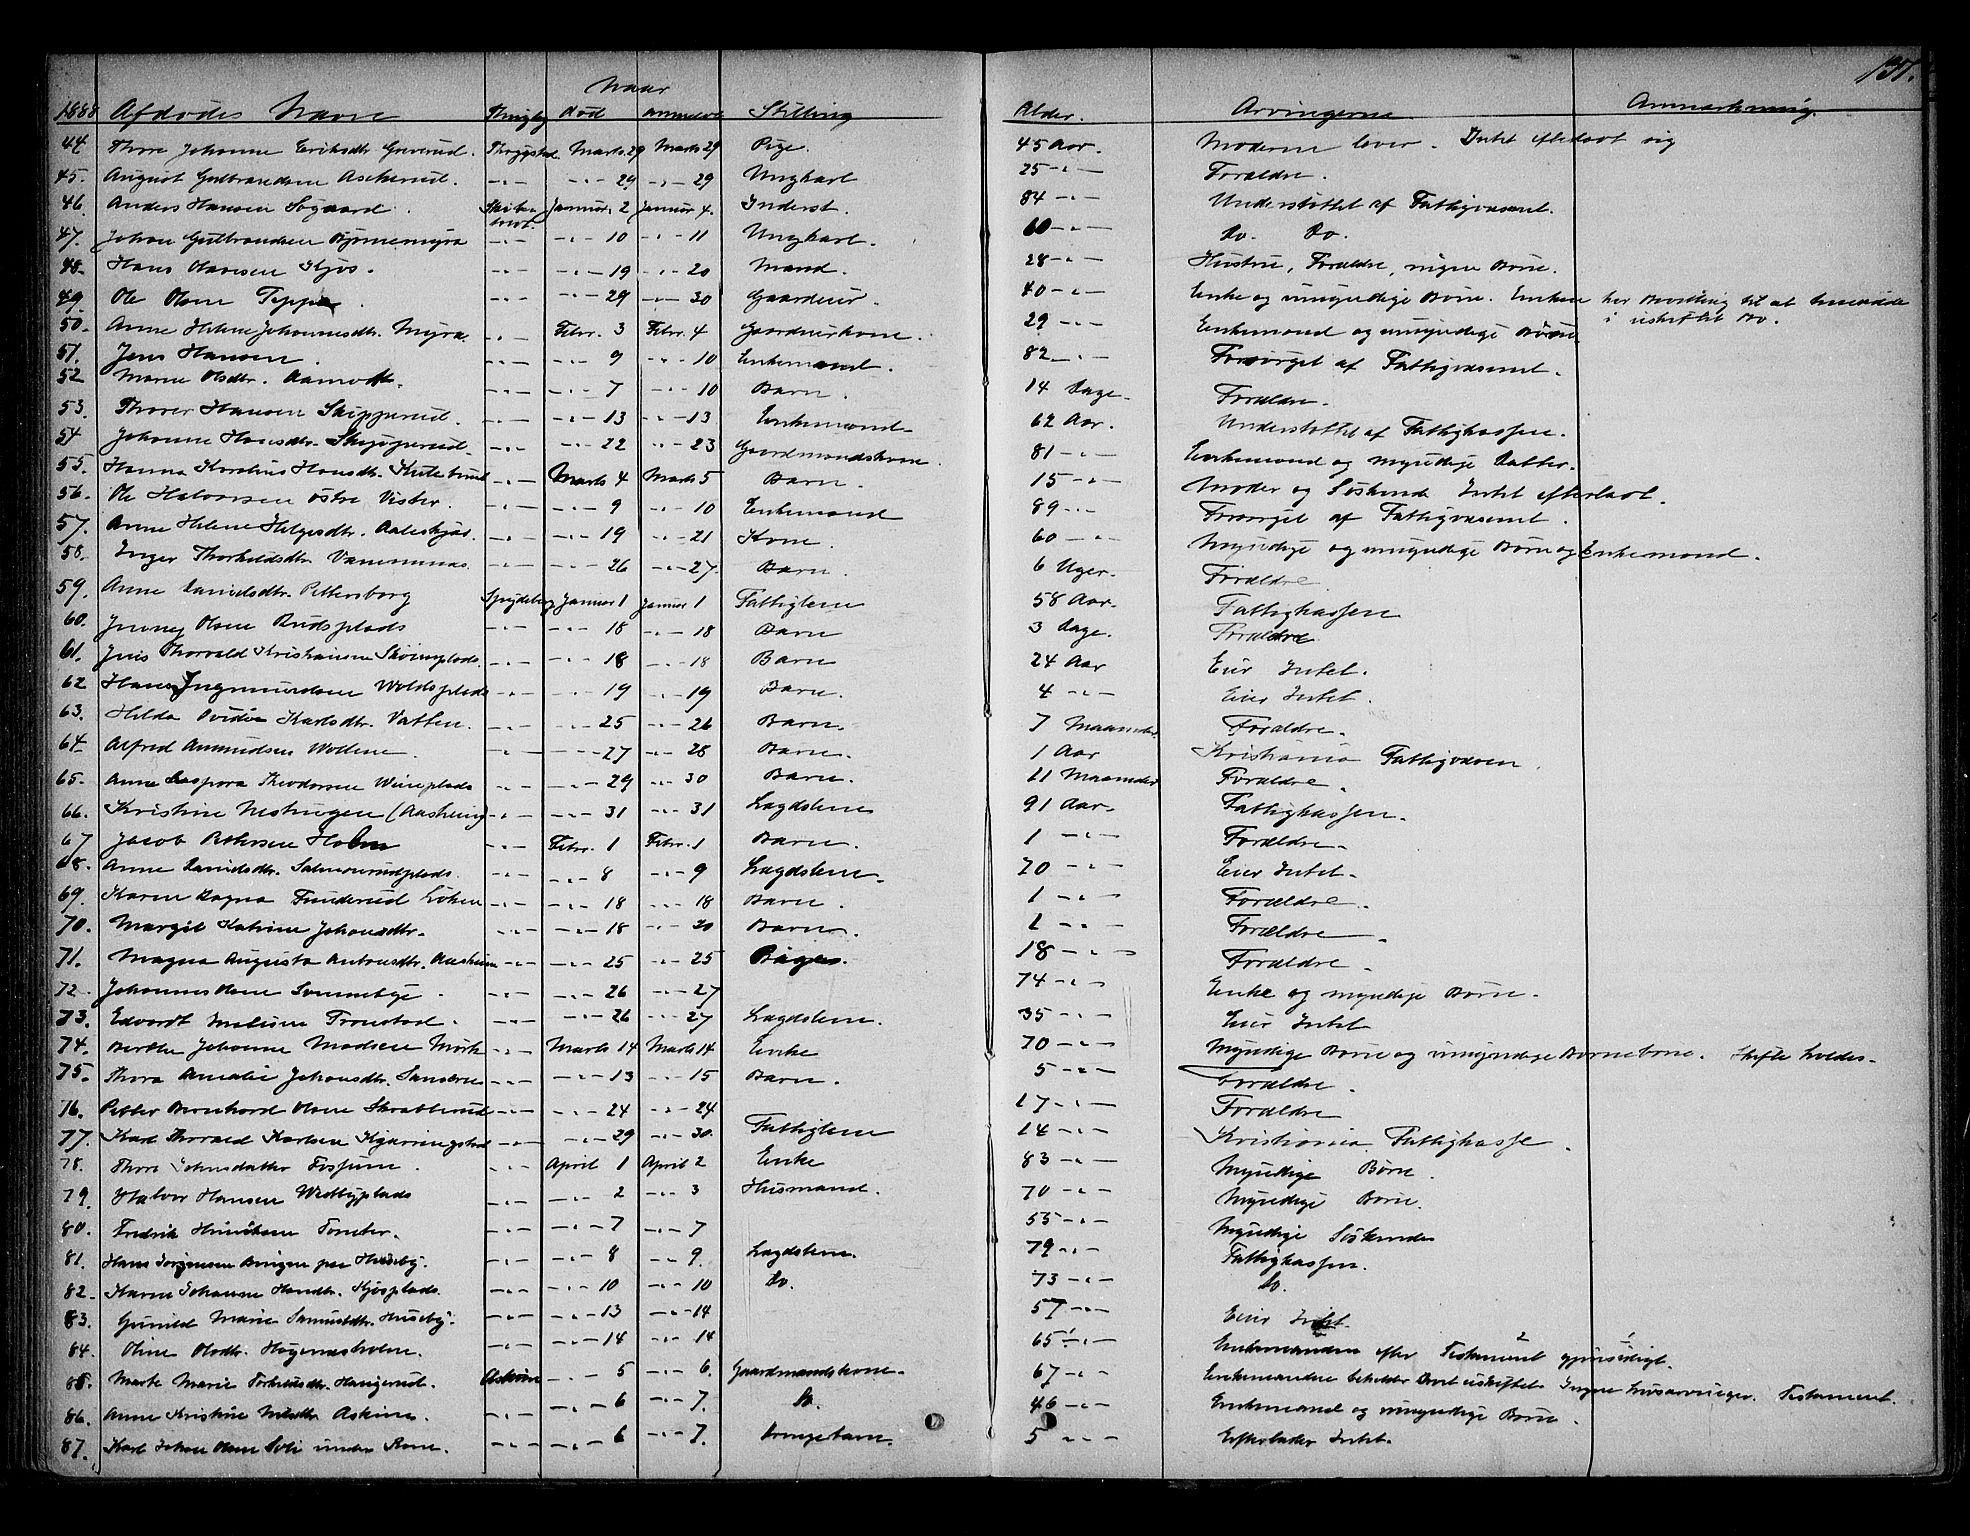 137.
Naar
1888 Afdødes Navn Thinglag død anmeldt Stilling Alder. Arvingerne Anmærkning.
44. Thora Johanne Eriksdtr. Greverud. Trøgstad Marts 29 Marts 29 Pige. 45 Aar. Moderen lever. Intet efterladt sig
45. August Gulbrandsen Askerud. -"- -"- 29 -"- 29 Ungkarl 25 -"- Forældre.
46. Anders Hansen Søgaard. Januar 2 Januar 4. Inderst. 84 -"- Understøttet af Fattigvæsenet.
47. Johan Gulbrandsen Bjørnemyra -"- -"- 10 -"- 11 Ungkarl. 60 -"- Do. Do.
48. Hans Hansen Kjos. -"- -"- 19 -"- 20 Mand. 28 -"- Hustru, Forældre, ingen Børn.
49. Ole Olsen Teppa. -"- 29 -"- 30 Gaardeier. 40 -"- Enke og umyndige Børn. Enken har Bevilling til at hensidde
i uskiftet Bo.
50. Anne Helene Johannesdtr. Myra. -"- Febr. 3 Febr. 4 Gaardeierkone. 29 -"- Enkemand og umyndige Børn
51. Jens Hansen. -"- -"- 9 -"- 10 Enkemand. 82 -"- Forsørget af Fattigvæsenet.
52 Maren Olsdtr. Aamodt. -"- -"- 7 -"- 10 Barn. 14 Dage. Forældre.
53. Thorer Hansen Skipperud. -"- -"- 13 -"- 13 Enkemand. 62 Aar. Understøttet af Fattigkassen.
54 Johanne Hansdtr. Skipperud. -"- -"- 22 -"- 23 Gaardmandskone. 81 -"- Enkemand og myndige Datter.
55. Hanna Karoline Hansdtr. -"- Marts 4 Marts 5 Barn. 15 -"- Moder og Søskende Intet efterladt.
56. Ole Halvorsen østre Vister. -"- -"- 9 -"- 10 Enkemand 89 -"- Forsørget af Fattigvæsenet.
57. Anne Helene Helgesdtr. -"- -"- 19 -"- 21 Kone. 60 -"- Myndige og umyndige Børn og Enkemand.
58. Inger Thorkildsdtr Vammenæs. -"- -"- 26 -"- 27. Barn. 6 Uger. Forældre
59. Anne Danielsdtr. Pettersborg Spydeberg Januar 1 Januar 1 Fattiglem 58 Aar. Fattigkassen
60. Olsen Rudsplads -"- -"- 18 -"- 18 Barn 3 Dage. Forældre
61. Jens Thorvald Kristiansen -"- -"- 18 -"- 18 Barn 24 Aar Eier Intet.
62 Hans Ingmundsen Woldsplads -"- -"- 19 -"- 19 Barn. 4 -"- Eier Intet.
63. Hilda Ovidia Karlsdtr. Vatten. -"- -"- 25 -"- 26 Barn. 7 Maaneder. Forældre.
64. Alfred Amundsen Wollene -"- -"- 27 -"- 28 Barn. 1 Aar Kristiania Fattigvæsen.
65. Anne Kaspora Theodorsen -"- -"- 29 -"- 30 Barn. 11 Maaneder Forældre.
66. Kristine Nestningen -"- -"- 31 -"- 31 Lægdslem 91 Aar. Fattigkassen.
67 Jacob Pettersen Holm -"- Febr. 1 Febr. 1 Barn. 1 -"- Forældre.
68. Anne Danielsdtr. -"- -"- 8 -"- 9 Lægdslem. 70 -"- Eier Intet.
69. Karen Dagna Funderud Løken -"- -"- 18 -"- 18 Barn. 1 -"- Forældre.
70. Margit Katrine Johansdtr. -"- -"- 18 -"- 20 Barn. 1 -"- Forældre.
71. Magna Augusta Antonsdtr. Aasheim -"- -"- 25 -"- 25 Pige. 18 -"- Forældre.
72. Johannes Olsen -"- -"- 26 -"- 27 74 -"- Enke og myndige Børn.
73. Edvardt Mathisen Tronstad. -"- -"- 26 -"- 27 Lægdslem. 35 -"- Eier Intet
74. Berthe Johanne Madsen Mørk -"- Marts 14 Marts 14 Enke 70 -"- Myndige Børn og umyndige Børnebørn. Skifte holdes.
75. Thora Amalie Johansdtr. -"- -"- 13 -"- 15 Barn. 5 -"- Forældre.
76. Petter Bernhard Olsen Skratterud -"- -"- 24 -"- 24 17 -"- Forældre
77. Karl Thorvald Karlsen -"- -"- 29 -"- 30. Fattiglem 14 -"- Kristiania Fattigkasse.
78. Thore Johnsdatter Fossum. -"- April 1 April 2 Enke 83 -"- Myndige Børn.
79. Halvor Hansen -"- -"- 2 -"- 3 Husmand. 70 -"- Myndige Børn.
80. Fredrik Hinriksen Tomter. -"- -"- 7 -"- 7 55 -"- Myndige Søskende
81. Hans Jørgensen paa Huseby. -"- -"- 8 -"- 9. Lægdslem. 79 -"- Fattigkassen.
82. Karen Johanne Hansdtr. Kjosplads. -"- -"- 10 -"- 10 Do. 73 -"- Do.
83. Gunild Marie Samuelsdtr. Huseby. -"- -"- 13 -"- 14 57 -"- Eier Intet.
84. Oline Olsdtr. -"- -"- 14 -"- 14 65 -"- Enkemanden efter Testament gjensidigt.
85. Marte Marie Torkildsdtr. Askim -"- 5 -"- 6. Gaardmandskone. 67 -"- Enkemanden beholder Boet uskiftet. Ingen Livsarvinger. Testament.
86. Anne Kristine Nilsdtr Askim. -"- -"- 6 -"- 7. Do. 46 -"- Enkemand og umyndige Børn.
87. Karl Johan Olsen under Rom. -"- -"- 6 -"- 7. Drengebarn. 5 -"- Efterlader Intet.